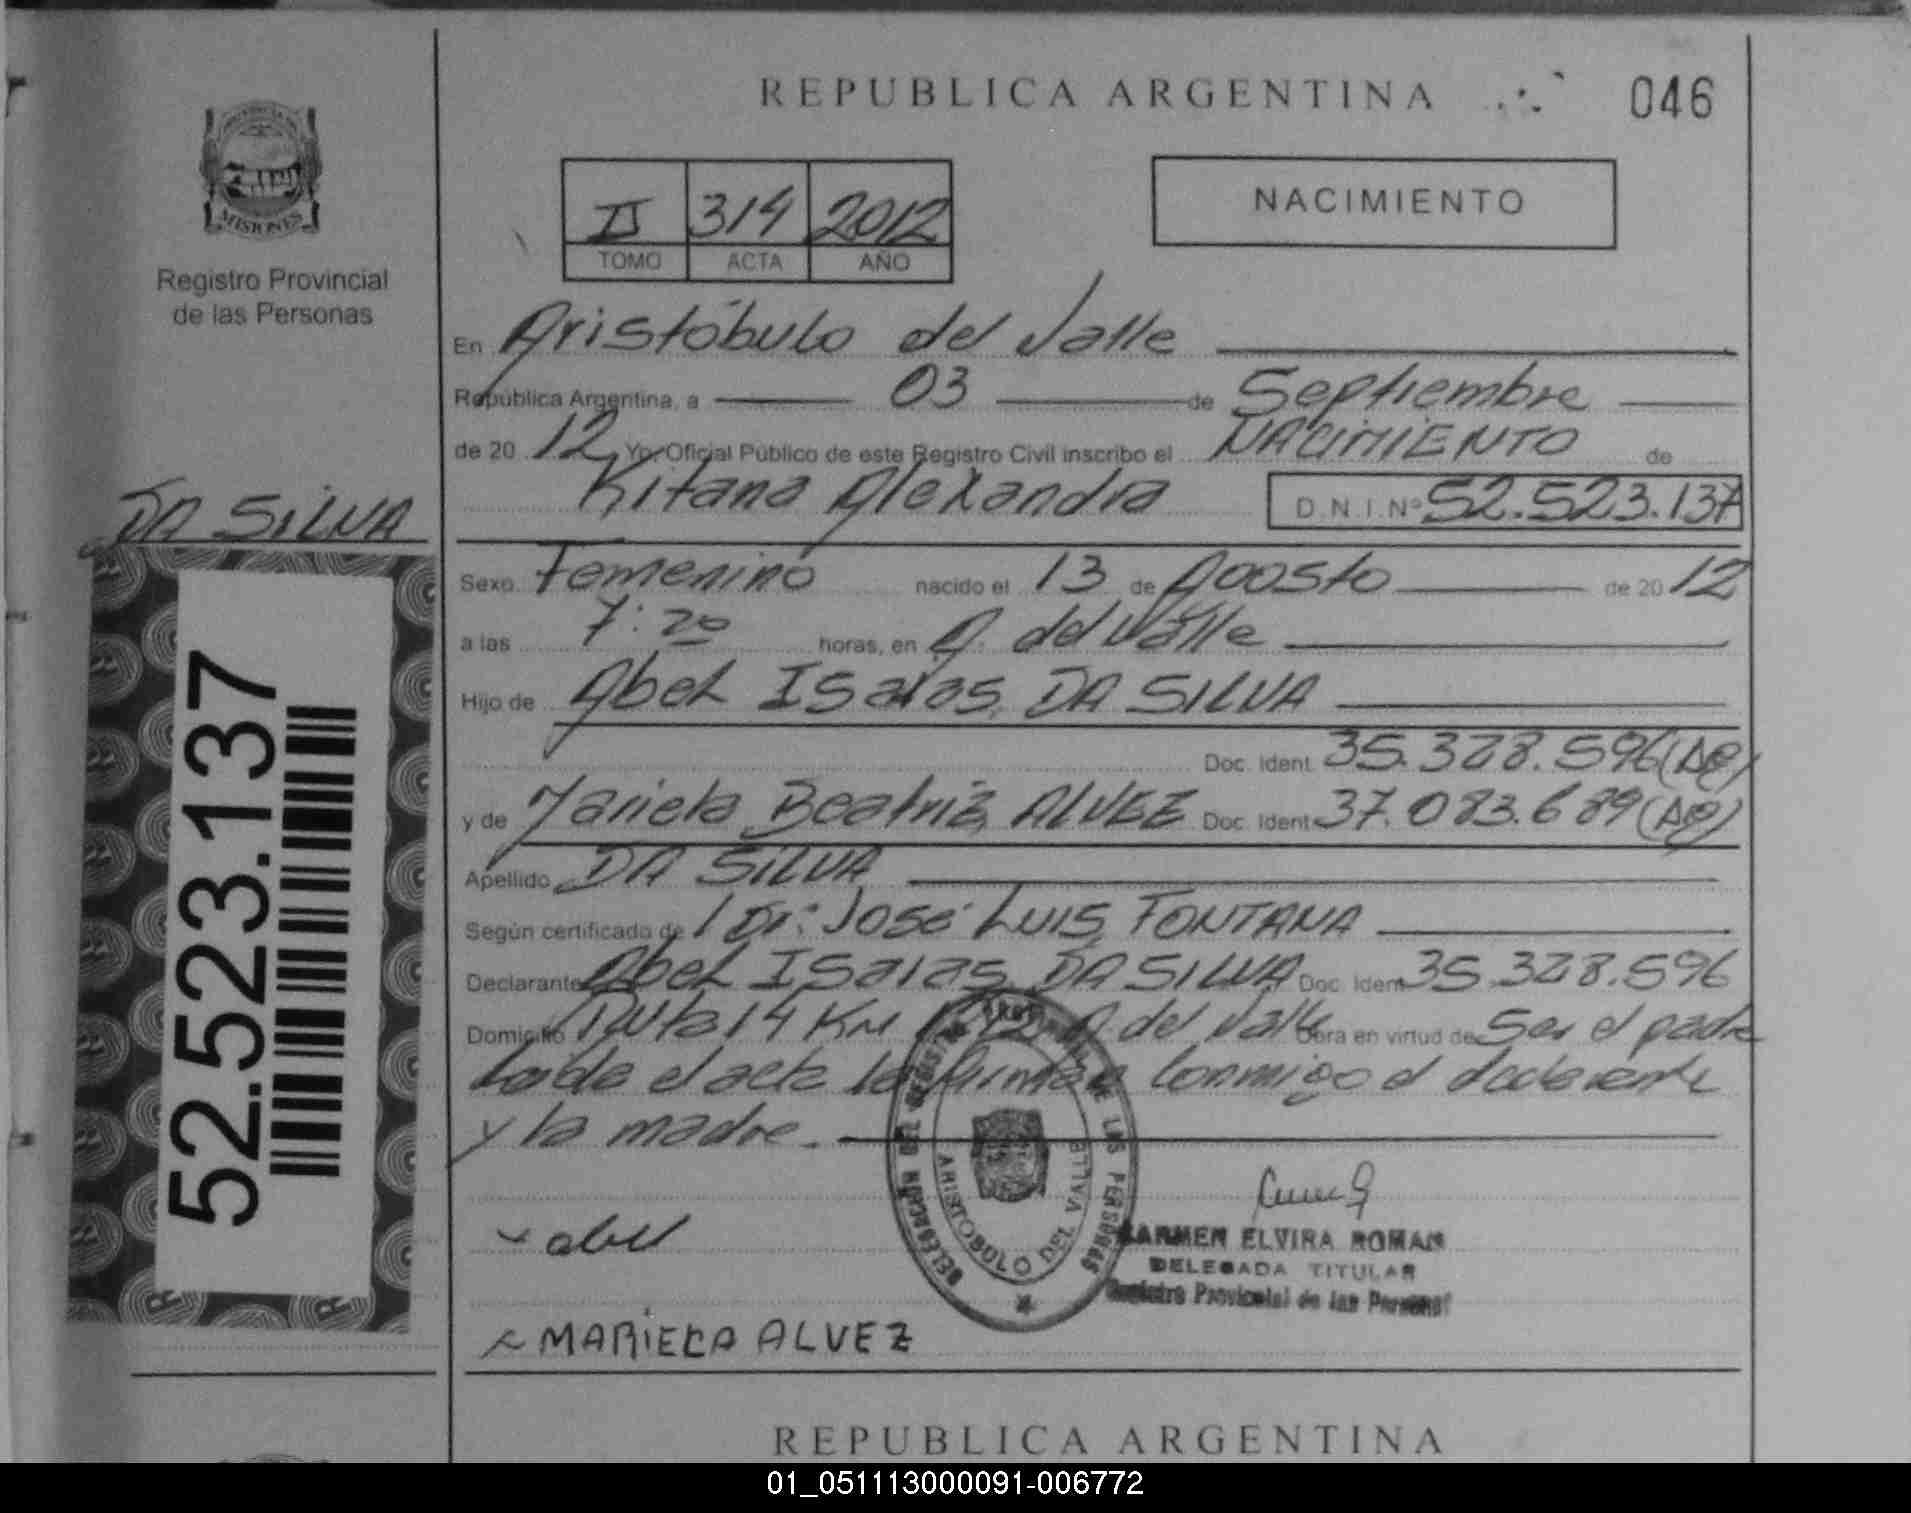 REPUBLICA ARGENTINA
046
MISIONES
Registro Provincial
de las Personas
II 314 2012
TOMO ACTA AÑO
NACIMIENTO
En Aristóbulo del Valle
República Argentina, a 03 de Septiembre
de 20 12 Yo, Oficial Público de este Registro Civil inscribo el NACIMIENTO de
Kitana Alexandra D.N.I.Nº 52.523.137
DA SILVA
52.523.137
Sexo Femenino nacido el 13 de Agosto de 20 12
a las 7:20 horas, en A. del Valle
Hijo de Abel Isaias DA SILVA
Doc. Ident. 35.328.596
y de Mariela Beatriz ALVEZ Doc. Ident. 37.083.689
Apellido DA SILVA
Según certificado de / Dr: José Luis FONTANA
Declarante Abel Isaias DA SILVA Doc. Ident 35.328.596
Domicilio Ruta 14 Km A del Valle Obra en virtud de Ser el padre
Leída el acta la firman conmigo el declarante
y la madre.
DELEGACION DEL REGISTRO PROVINCIAL DE LAS PERSONAS
ARISTOBULO DEL VALLE
x abel
CARMEN ELVIRA ROMAN
DELEGADA TITULAR
Registro Provincial de las Personas
x MARIELA ALVEZ
REPUBLICA ARGENTINA
01_051113000091-006772